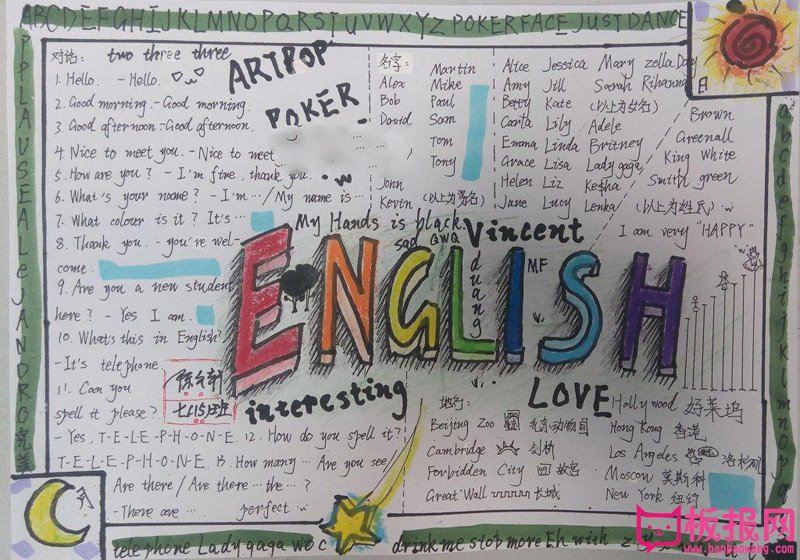 ABCDEFGHIJKLMNOPQRSTUVWXYZ POKERFACE JUST DANCE
APPLAUSE ALEJANDRO
对话: two three three
1. Hello. - Hello.
2. Good morning. - Good morning.
3. Good afternoon - Good afternoon
4. Nice to meet you. - Nice to meet
5. How are you? - I'm fine, thank you.
6. What's your name? - I'm ··· / My name is ···
7. What colour is it? It's ···
8. Thank you. - you're wel-
come.
9. Are you a new student
here? - Yes I am.
10. What's this in English?
- It's telephone
11. Can you
spell it please?
- Yes, T-E-L-E-P-H-O-N-E. 12. How do you spell it?
T-E-L-E-P-H-O-N-E. 13. How many ··· Are you see/
Are there / Are there ··· the ··· ?
- There are ··· perfect
ARTPOP
POKER
名字:
Alex
Bob
David
John
Kevin
Martin
Mike
Paul
Sam
Tom
Tony
(以上为男名)
Alice Jessica Mary zella Day
Amy Jill Sarah Rihanna
Betty Kate (以上为女名)
Carla Lily Adele
Emma Linda Britney
Grace Lisa Lady gaga
Helen Liz Ke$ha
Jane Lucy Lenka
Brown
Greenall
King White
Smith green
(以上为姓氏)
I am very "HAPPY"
日
My Hands is black
sad QWQ
Vincent
duang
MF
ENGLISH
interesting
LOVE
七(15)班
地名:
Beijing Zoo 北京动物园
Cambridge 剑桥
Forbidden City 故宫
Great Wall 长城
Hollywood 好莱坞
Hong Kong 香港
Los Angeles 洛杉矶
Moscow 莫斯科
New York 纽约
telephone Lady gaga wo c
drink me stop more Eh with
abcdefghijklmnop
板报网
www.banbaowang.com